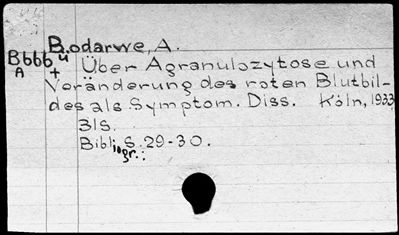 Bodarwe, A.
Bbbb ü
A + Über Agranulozytose und
Veränderung des roten Blutbil-
des als Symptom. Diss. Köln, 1933
31S.
Bibliogr.: S. 29-30.